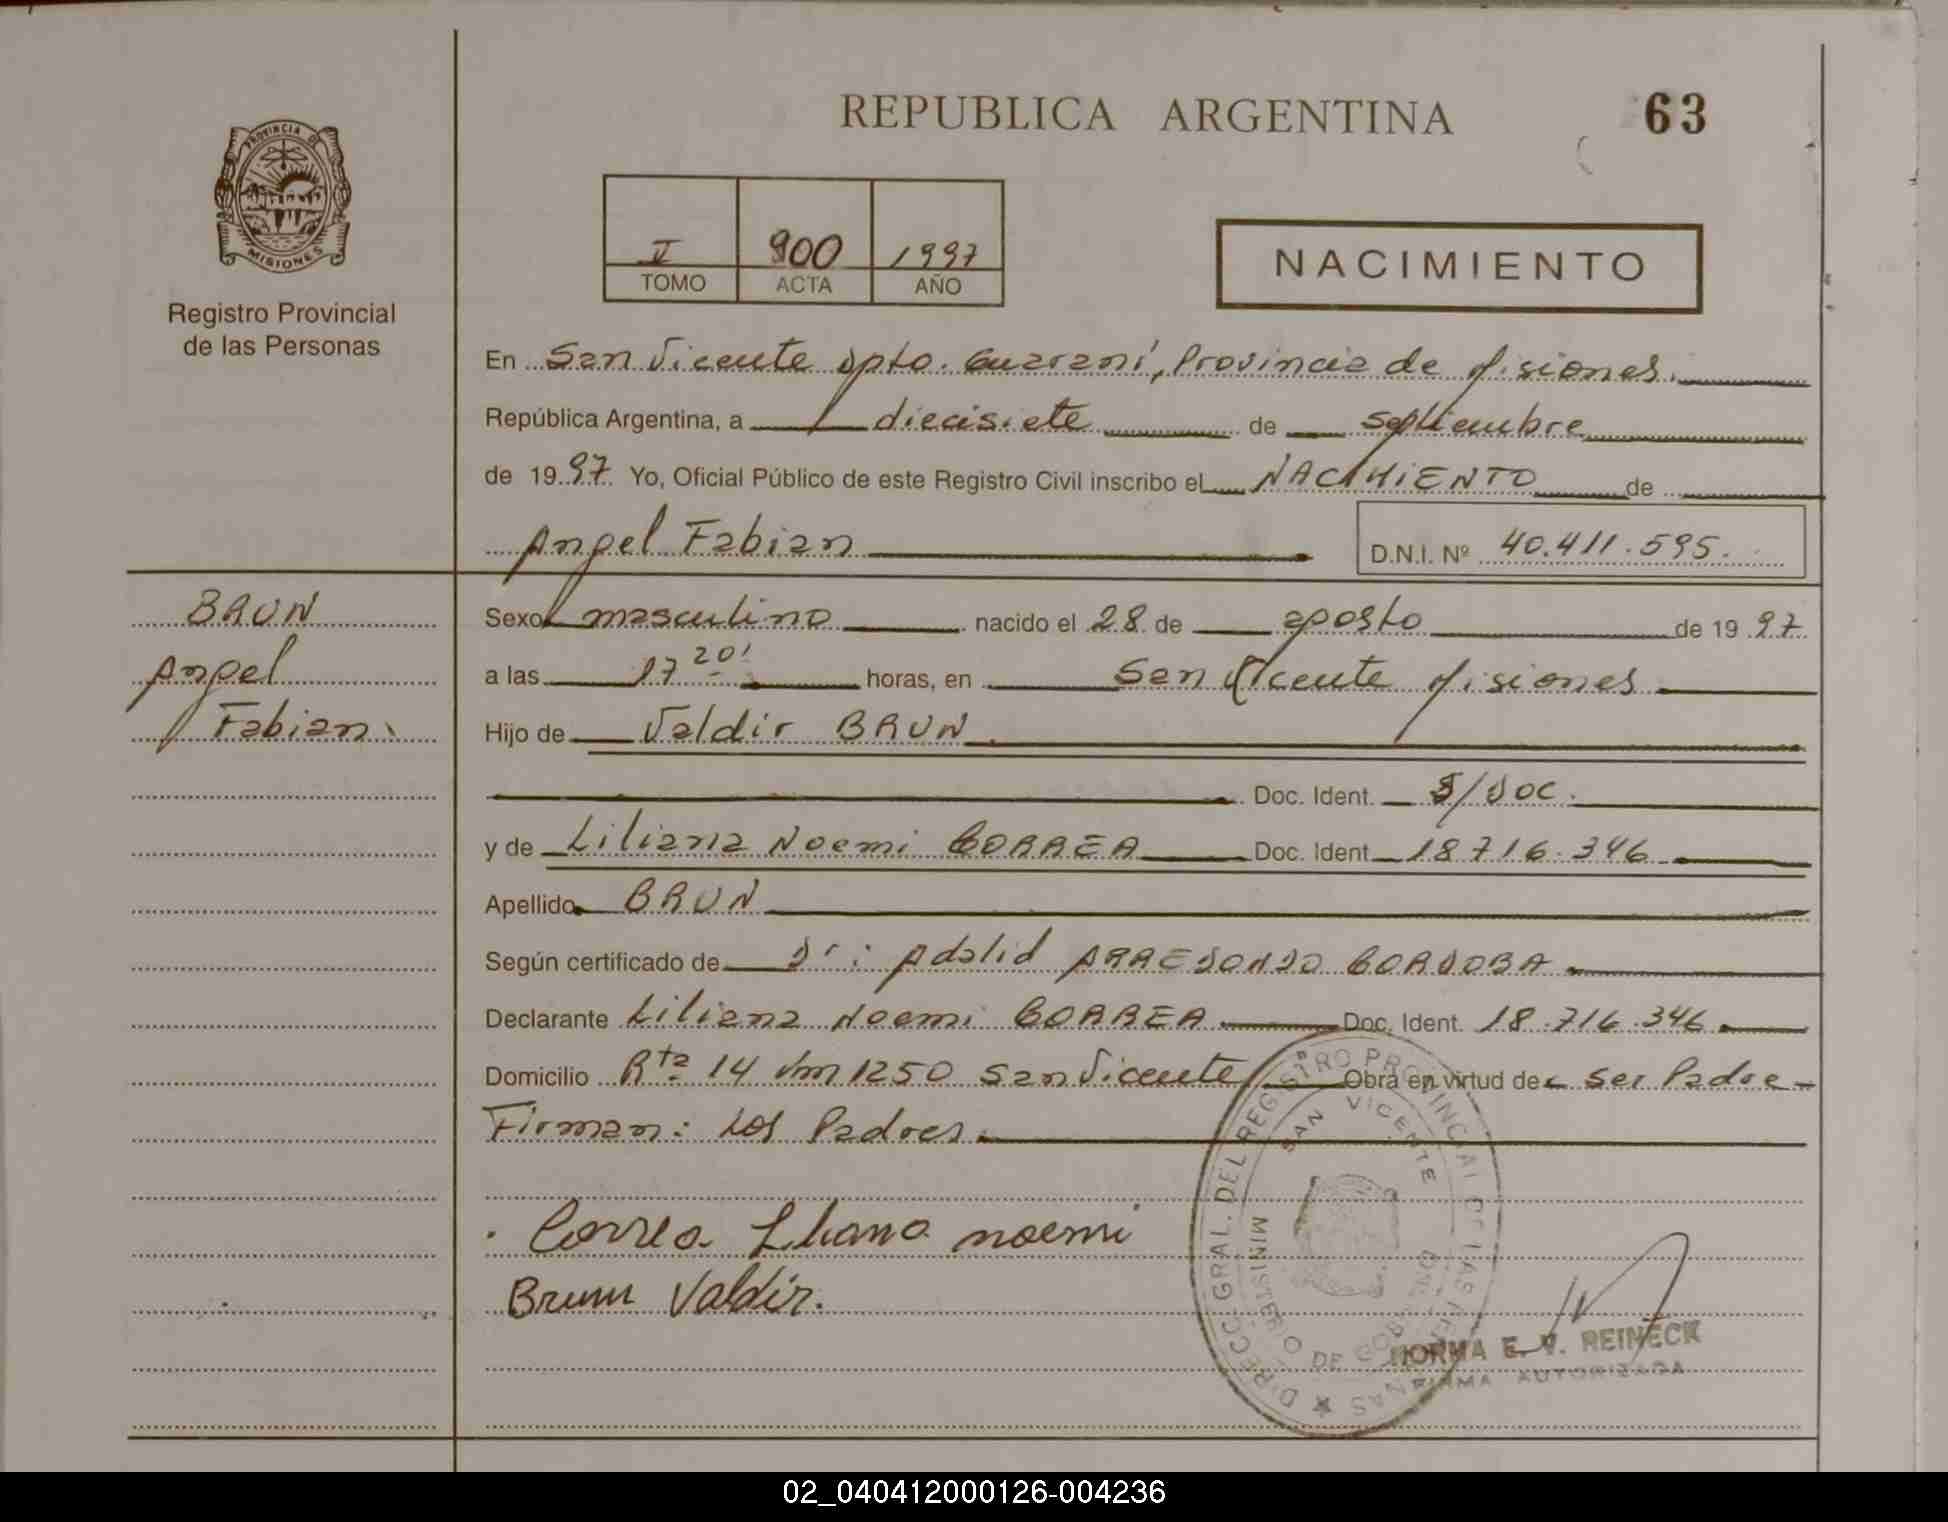 REPUBLICA ARGENTINA
63
PROVINCIA DE
MISIONES
Registro Provincial
de las Personas
II 900 1997
TOMO ACTA AÑO
NACIMIENTO
En San Vicente Dpto. Guaraní, Provincia de Misiones.
República Argentina, a diecisiete de septiembre
de 1997 Yo, Oficial Público de este Registro Civil inscribo el NACIMIENTO de
Angel Fabian
D.N.I. Nº 40.411.595.
BRUN
Angel
Fabian.
Sexo masculino nacido el 28 de agosto de 1997
a las 17 20' horas, en San Vicente Misiones
Hijo de Valdir BRUN
Doc. Ident. S/Doc.
y de Liliana Noemi CORREA Doc. Ident 18716.346
Apellido BRUN
Según certificado de Dr: Adalid ARREDONDO CORDOBA
Declarante Liliana Noemi CORREA Doc. Ident. 18.716.346
Domicilio Rta 14 Km 1250 San Vicente Obra en virtud de ser Padre
Firman: Los Padres.
Correa Liliana noemi
Brum Valdir.
DIRECC. GRAL. DEL REGISTRO PROVINCIAL DE LAS PERSONAS
SAN VICENTE
MINISTERIO DE GOBIERNO
NORMA E. V. REINECK
FIRMA AUTORIZADA
02_040412000126-004236